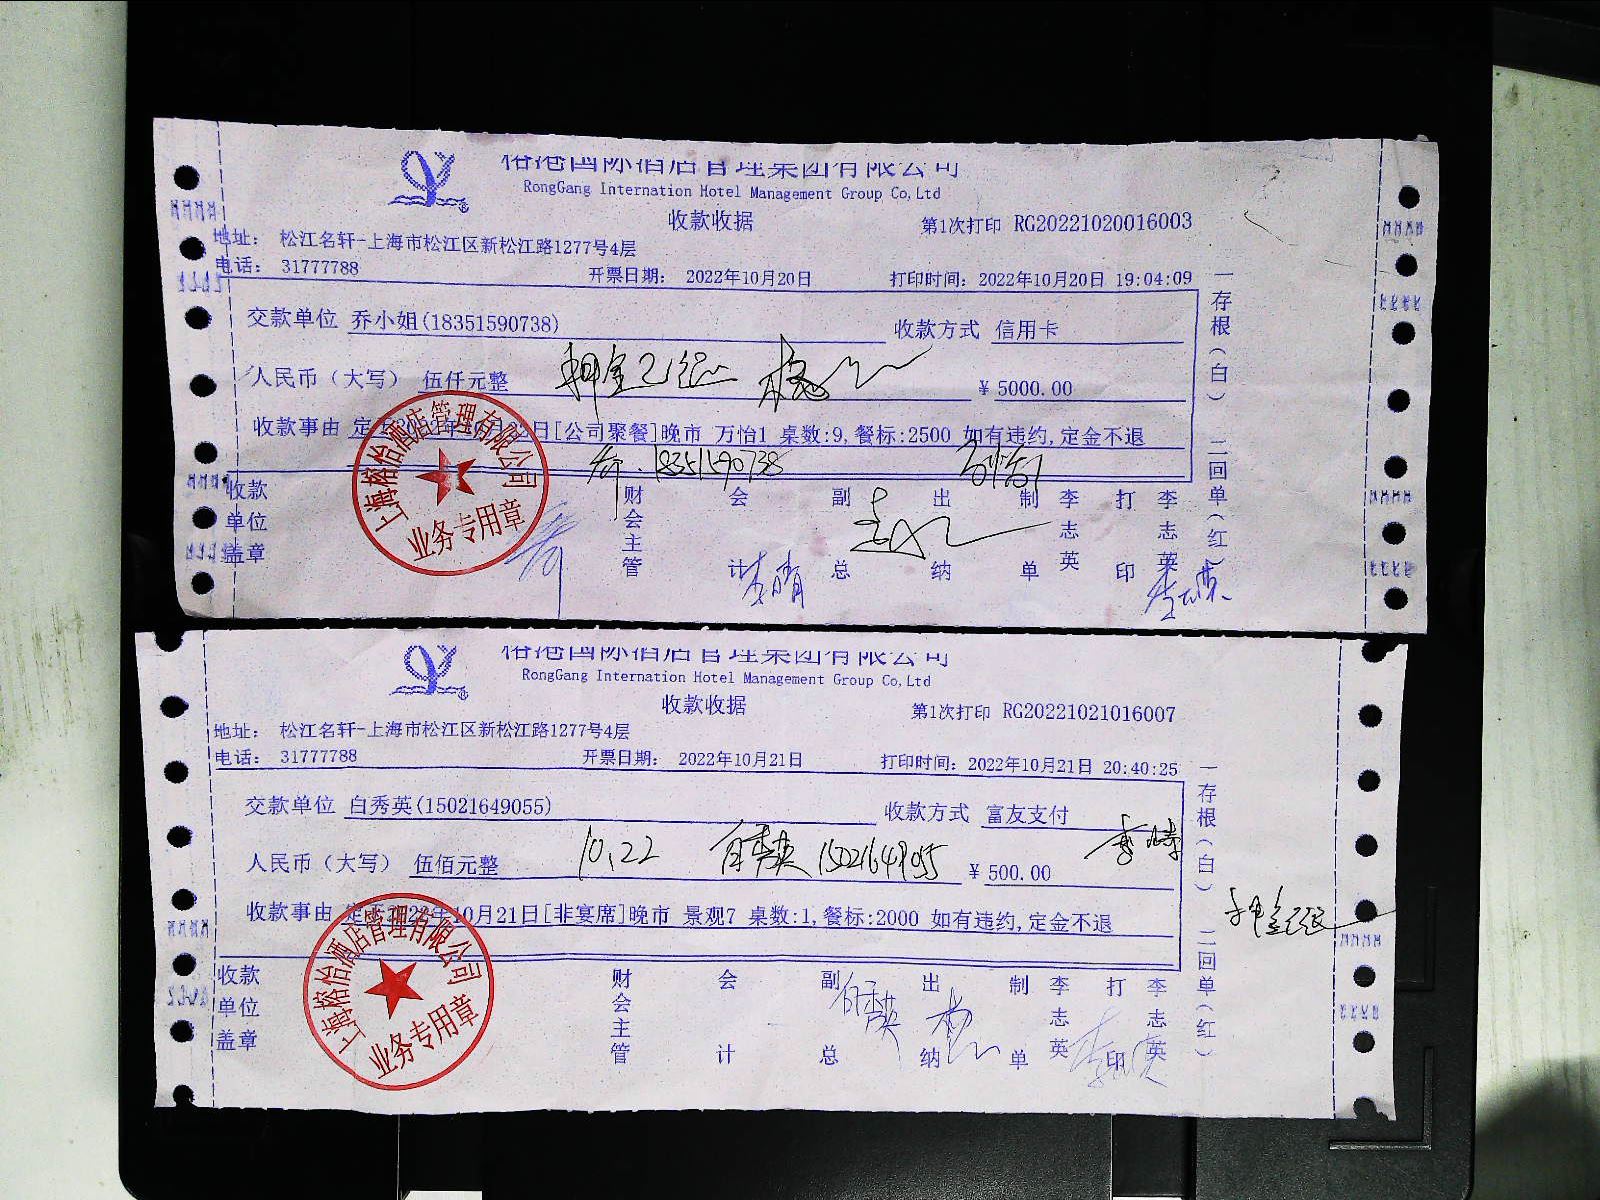 榕港国际酒店管理集团有限公司
RongGang Internation Hotel Management Group Co,Ltd
收款收据
第1次打印 RG20221020016003
地址： 松江名轩-上海市松江区新松江路1277号4层
电话： 31777788
开票日期： 2022年10月20日
打印时间： 2022年10月20日 19:04:09
交款单位 乔小姐(18351590738)
收款方式 信用卡
人民币（大写） 伍仟元整
押金已经
¥ 5000.00
收款事由 定于2022年10月22日[公司聚餐]晚市 万怡1 桌数:9,餐标:2500 如有违约,定金不退
18351590738
上海榕怡酒店管理有限公司
业务专用章
收款单位盖章
财会主管
会计
副总
出纳
制单
李志英
打印
李志英
一存根（白） 二回单（红）
榕港国际酒店管理集团有限公司
RongGang Internation Hotel Management Group Co,Ltd
收款收据
第1次打印 RG20221021016007
地址： 松江名轩-上海市松江区新松江路1277号4层
电话： 31777788
开票日期： 2022年10月21日
打印时间： 2022年10月21日 20:40:25
交款单位 白秀英(15021649055)
收款方式 富友支付
人民币（大写） 伍佰元整
10.22 白秀英 15021649055
¥ 500.00
收款事由 定于2022年10月21日[非宴席]晚市 景观7 桌数:1,餐标:2000 如有违约,定金不退
上海榕怡酒店管理有限公司
业务专用章
收款单位盖章
财会主管
会计
副总
白秀英
出纳
制单
李志英
打印
李志英
一存根（白） 二回单（红）